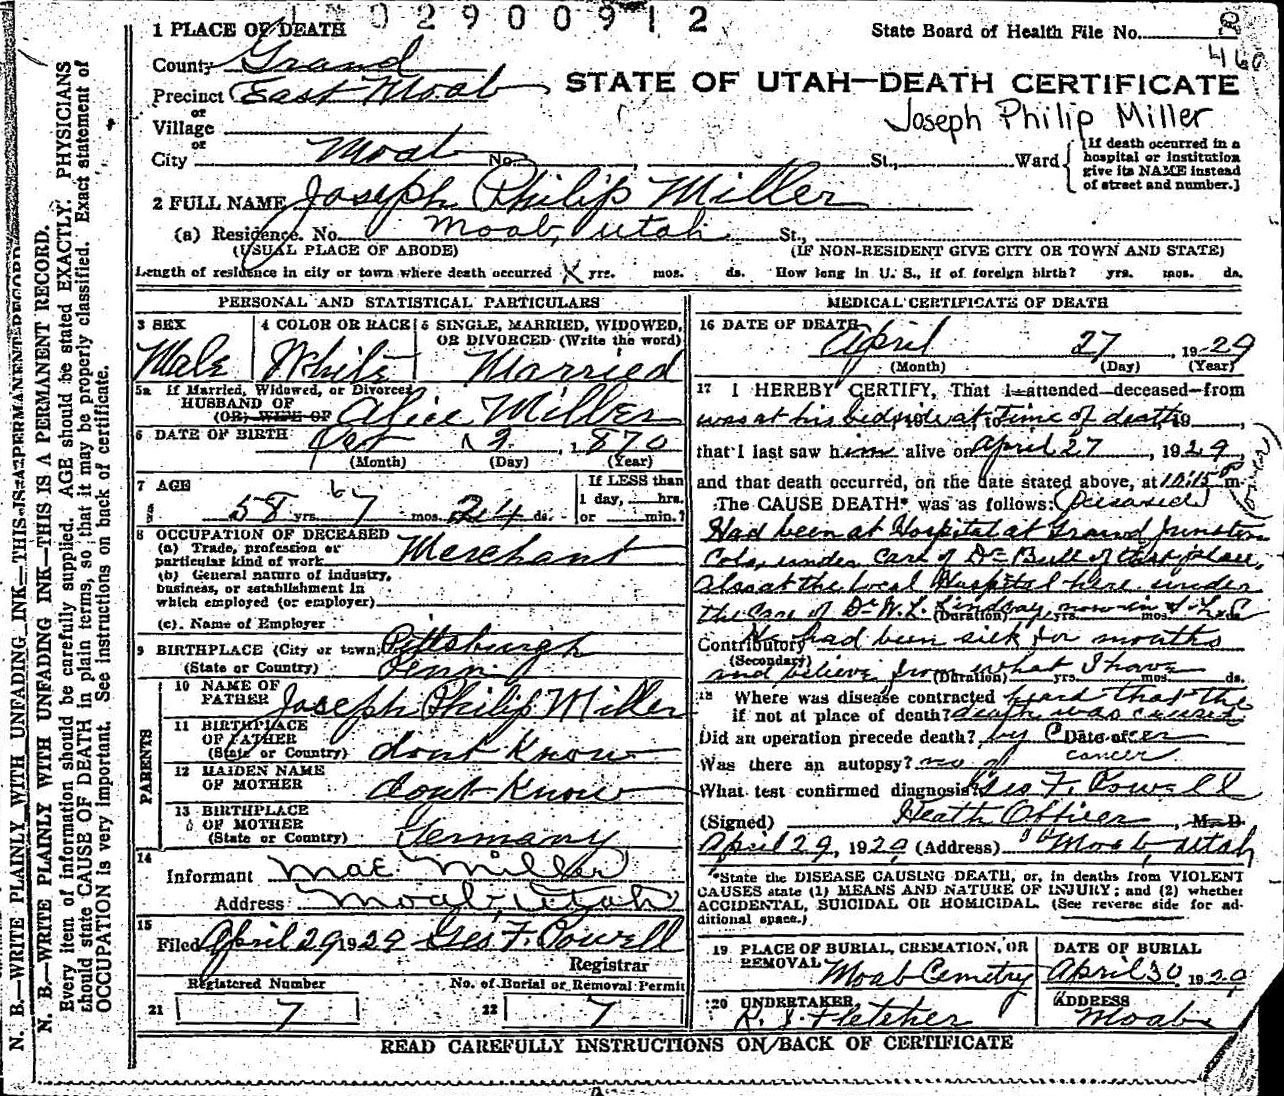 02900912
1 PLACE OF DEATH
State Board of Health File No.
460
County Grand
STATE OF UTAH—DEATH CERTIFICATE
Precinct East Moab
Joseph Philip Miller
or
Village
or
City Moab No. St., Ward
[If death occurred in a
hospital or institution
give its NAME instead
of street and number.]
2 FULL NAME Joseph Philip Miller
(a) Residence. No. Moab, Utah St.,
(USUAL PLACE OF ABODE) (IF NON-RESIDENT GIVE CITY OR TOWN AND STATE)
Length of residence in city or town where death occurred X yrs. mos. ds. How long in U. S., if of foreign birth? yrs. mos. ds.
PERSONAL AND STATISTICAL PARTICULARS
3 SEX
Male
4 COLOR OR RACE
White
5 SINGLE, MARRIED, WIDOWED,
OR DIVORCED (Write the word)
Married
5a If Married, Widowed, or Divorced
HUSBAND OF
(OR) WIFE OF Alice Miller
6 DATE OF BIRTH Oct 2, 1870
(Month) (Day) (Year)
7 AGE
58 yrs. 6 7 mos. 24 ds.
If LESS than
1 day, hrs.
or min.?
8 OCCUPATION OF DECEASED
(a) Trade, profession or
particular kind of work Merchant
(b) General nature of industry,
business, or establishment in
which employed (or employer)
(c) Name of Employer
9 BIRTHPLACE (City or town) Pittsburgh
(State or Country) Penn.
PARENTS
10 NAME OF
FATHER Joseph Philip Miller
11 BIRTHPLACE
OF FATHER
(State or Country) dont Know
12 MAIDEN NAME
OF MOTHER dont Know
13 BIRTHPLACE
OF MOTHER
(State or Country) Germany
14
Informant Mae Miller
Address Moab, Utah
15
Filed April 29 1929 Geo. F. Powell
Registrar
Registered Number No. of Burial or Removal Permit
21 7 22 7
MEDICAL CERTIFICATE OF DEATH
16 DATE OF DEATH
April 27, 1929
(Month) (Day) (Year)
17 I HEREBY CERTIFY, That I attended deceased from
was at his bedside at time of death, 19
that I last saw him alive on April 27, 1929
and that death occurred, on the date stated above, at 10:15 P m.
The CAUSE DEATH* was as follows: Deceased
Had been at Hospital at Grand Junction
Colo, under care of Dr Bull of that place,
also at the Local Hospital here under
the care of Dr W. L. Lindsay, now in
(Duration) yrs. mos. ds.
Contributory He had been sick for months
(Secondary)
and believe from what I have
(Duration) yrs. mos. ds.
18 Where was disease contracted heard that the
if not at place of death? death was caused
Did an operation precede death? by Cancer Date of
cancer
Was there an autopsy? no
What test confirmed diagnosis? Geo F. Powell
(Signed) Heath Officer, M. D.
April 29, 1929 (Address) Moab, Utah
*State the DISEASE CAUSING DEATH, or, in deaths from VIOLENT
CAUSES state (1) MEANS AND NATURE OF INJURY; and (2) whether
ACCIDENTAL, SUICIDAL OR HOMICIDAL. (See reverse side for ad-
ditional space.)
19 PLACE OF BURIAL, CREMATION, OR
REMOVAL Moab Cemetry
DATE OF BURIAL
April 30 1929
20 UNDERTAKER
R. J. Fletcher
ADDRESS
Moab
READ CAREFULLY INSTRUCTIONS ON BACK OF CERTIFICATE
N. B.—WRITE PLAINLY WITH UNFADING INK—THIS IS A PERMANENT RECORD
N. B.—WRITE PLAINLY WITH UNFADING INK—THIS IS A PERMANENT RECORD.
Every item of information should be carefully supplied. AGE should be stated EXACTLY. PHYSICIANS
should state CAUSE OF DEATH in plain terms, so that it may be properly classified. Exact statement of
OCCUPATION is very important. See instructions on back of certificate.